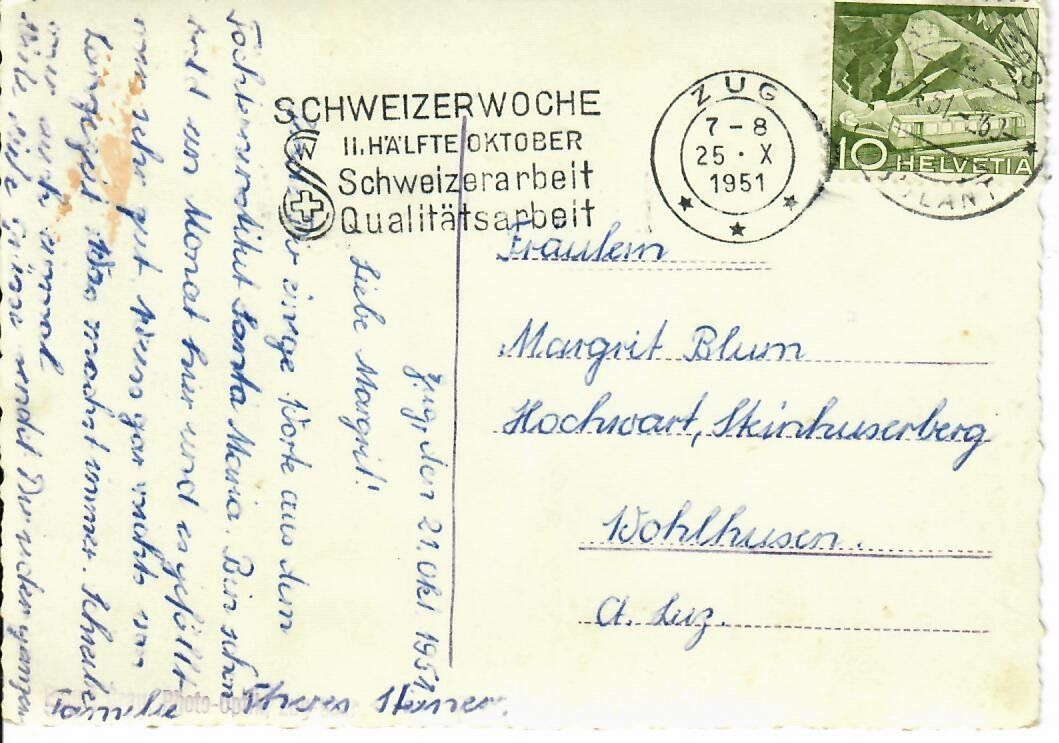 SCHWEIZERWOCHE
II. HÄLFTE OKTOBER
Schweizerarbeit
Qualitätsarbeit
ZUG
7-8
25 · X
1951
10 HELVETIA
Fräulein
Margrit Blum
Hochwart, Steinhuserberg
Wohlhusen.
Ct. Luz.
Zug, den 21. Okt 1951
Liebe Margrit!
einige Worte aus dem
Töchterinstitut Santa Maria. Bin schon
bald ein Monat hier und es gefällt
mir sehr gut. Weiss gar nichts von
Langzeit. Was machst immer. Schreibe
mir auch einmal.
Viele viele Grüsse sendet Dir und der ganzen
Familie Theres